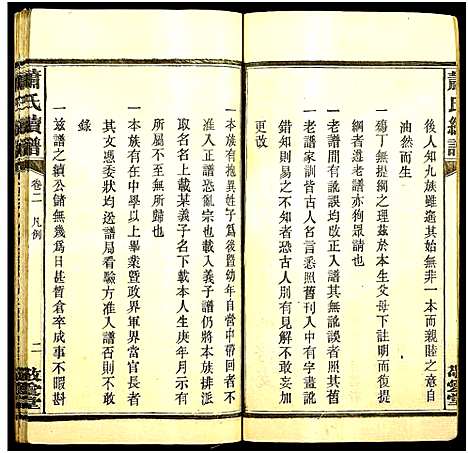 蕭氏續譜
後人知九族雖遠其始無非一本而親睦之意自
油然而生
一殤丁無提獨之理茲於本生父母下註明而提
綱者遵老譜亦猶行古之道也
一老譜閒有訛誤均改正入譜其無訛誤者照其舊
一老譜家訓皆古人名言悉照舊刊入中有字畫訛
錯知則更之不知者恐古人別有見解不敢妄加
更改
一本族有撫異姓子爲後曁幼年自營中帶回者不
准入正譜恐亂宗也載入義子譜仍將本族排派
取名名上載某義子名下載本人生庚年月示有
所屬不至無所歸也
一本族有在中學以上畢業曁政界軍界當官長者
其文憑委狀均送譜局看驗方准入譜否則不敢
錄
一茲譜之續公儲無幾爲日甚暫倉卒成事不暇斟
蕭氏續譜
卷二 凡例
二
敬愛堂